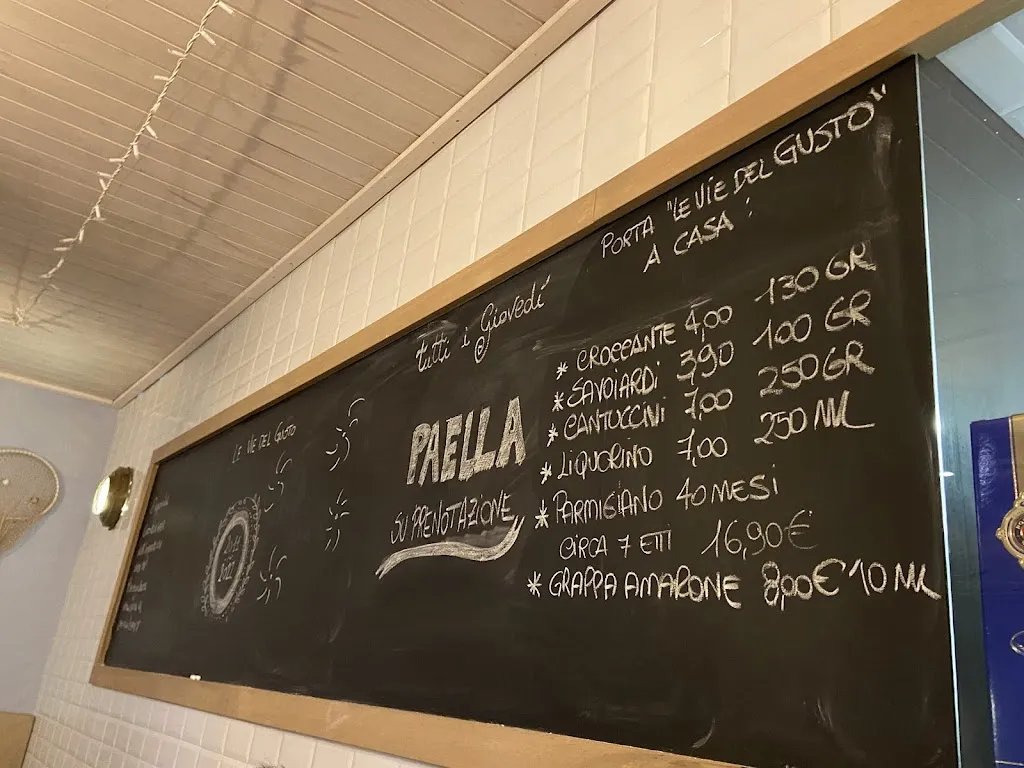 LE VIE DEL GUSTO
tutti i Giovedì
PAELLA
SU PRENOTAZIONE
PORTA "LE VIE DEL GUSTO"
A CASA:
* CROCCANTE 4,00 130 GR
* SAVOIARDI 3,90 100 GR
* CANTUCCINI 7,00 250 GR
* LIQUORINO 7,00 250 ML
* PARMIGIANO 40 MESI
CIRCA 7 ETTI 16,90€
* GRAPPA AMARONE 8,00€ 10 ML